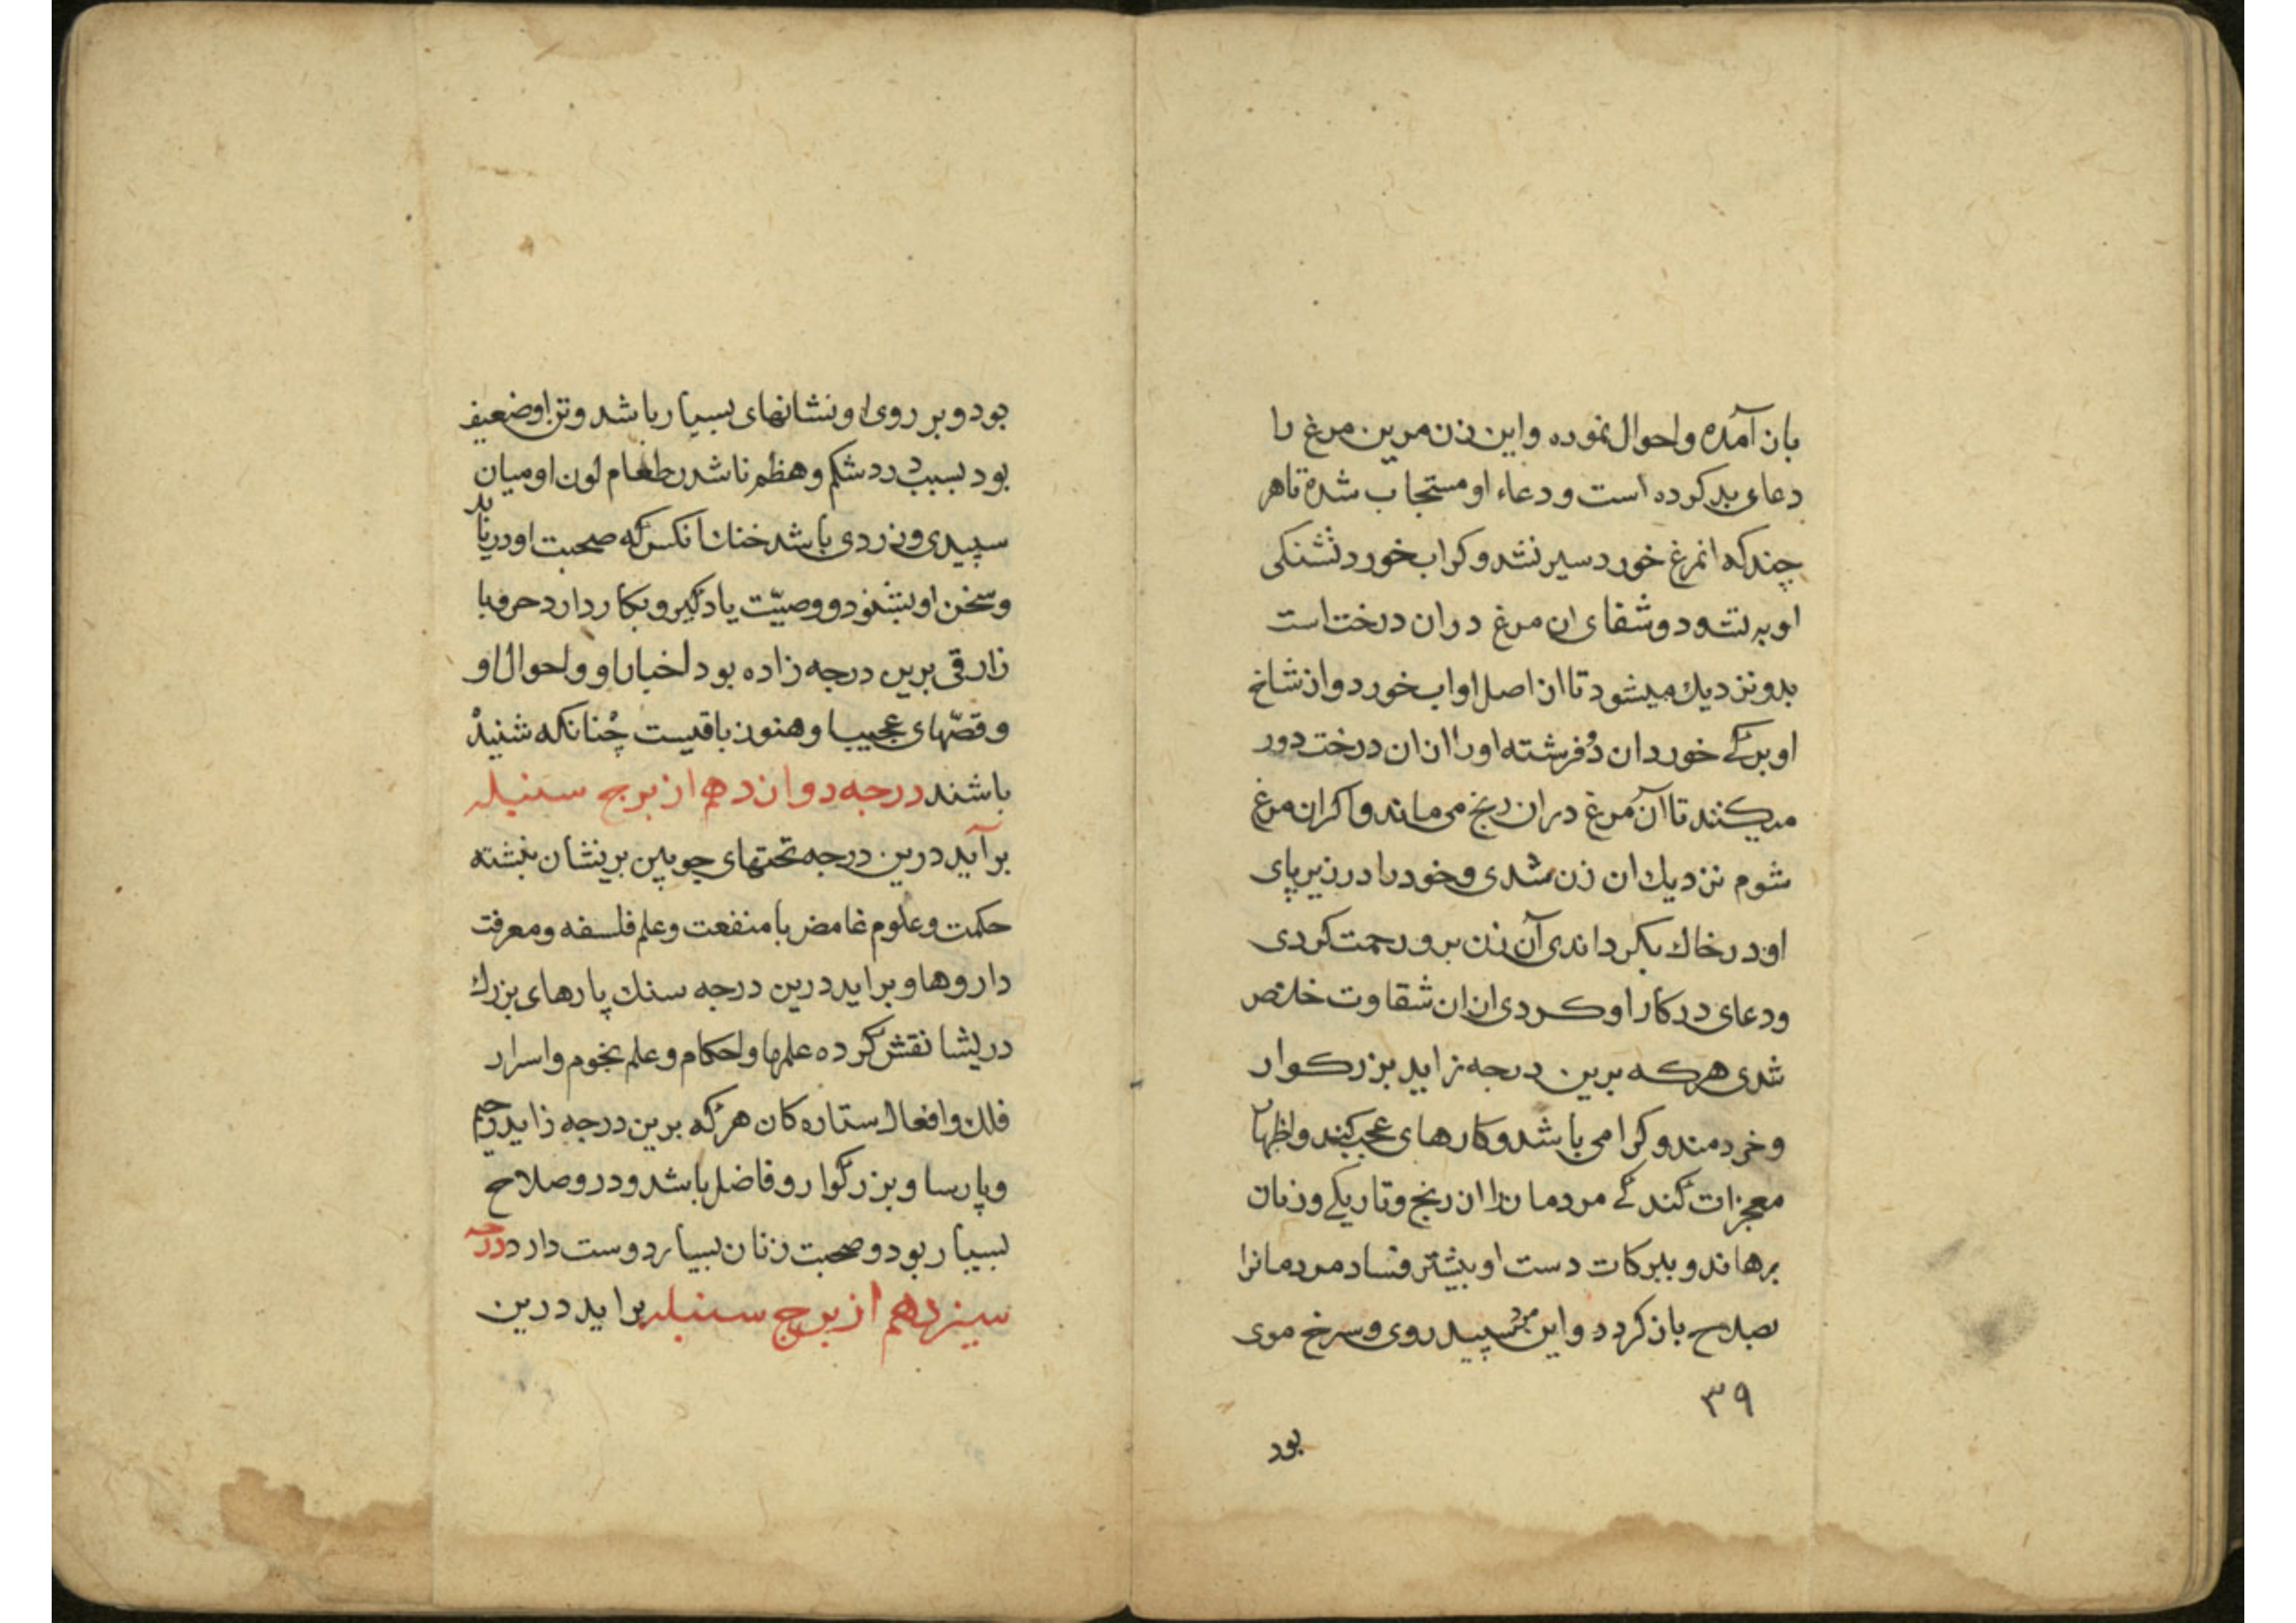 بان آمده واحوال نموده واین زن مرین مرغ را
دعاء بد کرده است ودعاء او مستجاب شده تاهر
چند که انمرغ خورد سیر نشد وکر اب خورد تشنکی
او به نشود وشفای ان مرغ دران درخت است
بدو نزدیك میشود تا از اصل او اب خورد واز شاخ
او برکے خورد ان دو فرشته اورا ازان درخت دور
میکنند تا آن مرغ دران رنج می ماند واکر ان مرغ
شوم نزدیك ان زن شدی وخود را در زیر پای
او در خاك بکردانیدی آن زن برو رحمت کردی
ودعای در کار او کردی ازان شقاوت خلاص
شدی هرکه برین درجه زاید بزرکوار
وخردمند وکرامی باشد وکارهای عجب کند واظهار
معجزات کند کے مردمانرا از رنج وتاریکے وزیان
برهاند و ببرکات دست او بیشتر فساد مردمانرا
بصلاح بازکردد واین مرد سپید روی وسرخ موی
۳۹
بود
بود و بر روی او نشانهای بسیار باشد وتن او ضعیف
بود بسبب درد شکم وهظم ناشدن طعام لون او میان
سپیدی وزردی باشد خنك انکس که صحبت او دریابد
وسخن او بشنود ووصیّت یاد کیرد وبکار دارد
زارقی برین درجه زاده بود اخبار او واحوال او
وقصّهای عجیب او هنوز باقیست چنانکه شنیده
باشند درجه دوازدهم از برج سنبله
برآید درین درجه تختهای چوبین بریشان نبشته
حکمت وعلوم غامض با منفعت وعلم فلسفه ومعرفت
داروها وبر اید درین درجه سنك پارهای بزرك
دریشا نقش کرده علمها واحکام وعلم نجوم واسرار
فلك وافعال ستاره کان هرکه برین درجه زاید رحیم
وپارسا وبزرکوار وفاضل باشد ودرو صلاح
بسیار بود وصحبت زنان بسیار دوست دارد درجه
سیزدهم از برج سنبله براید درین